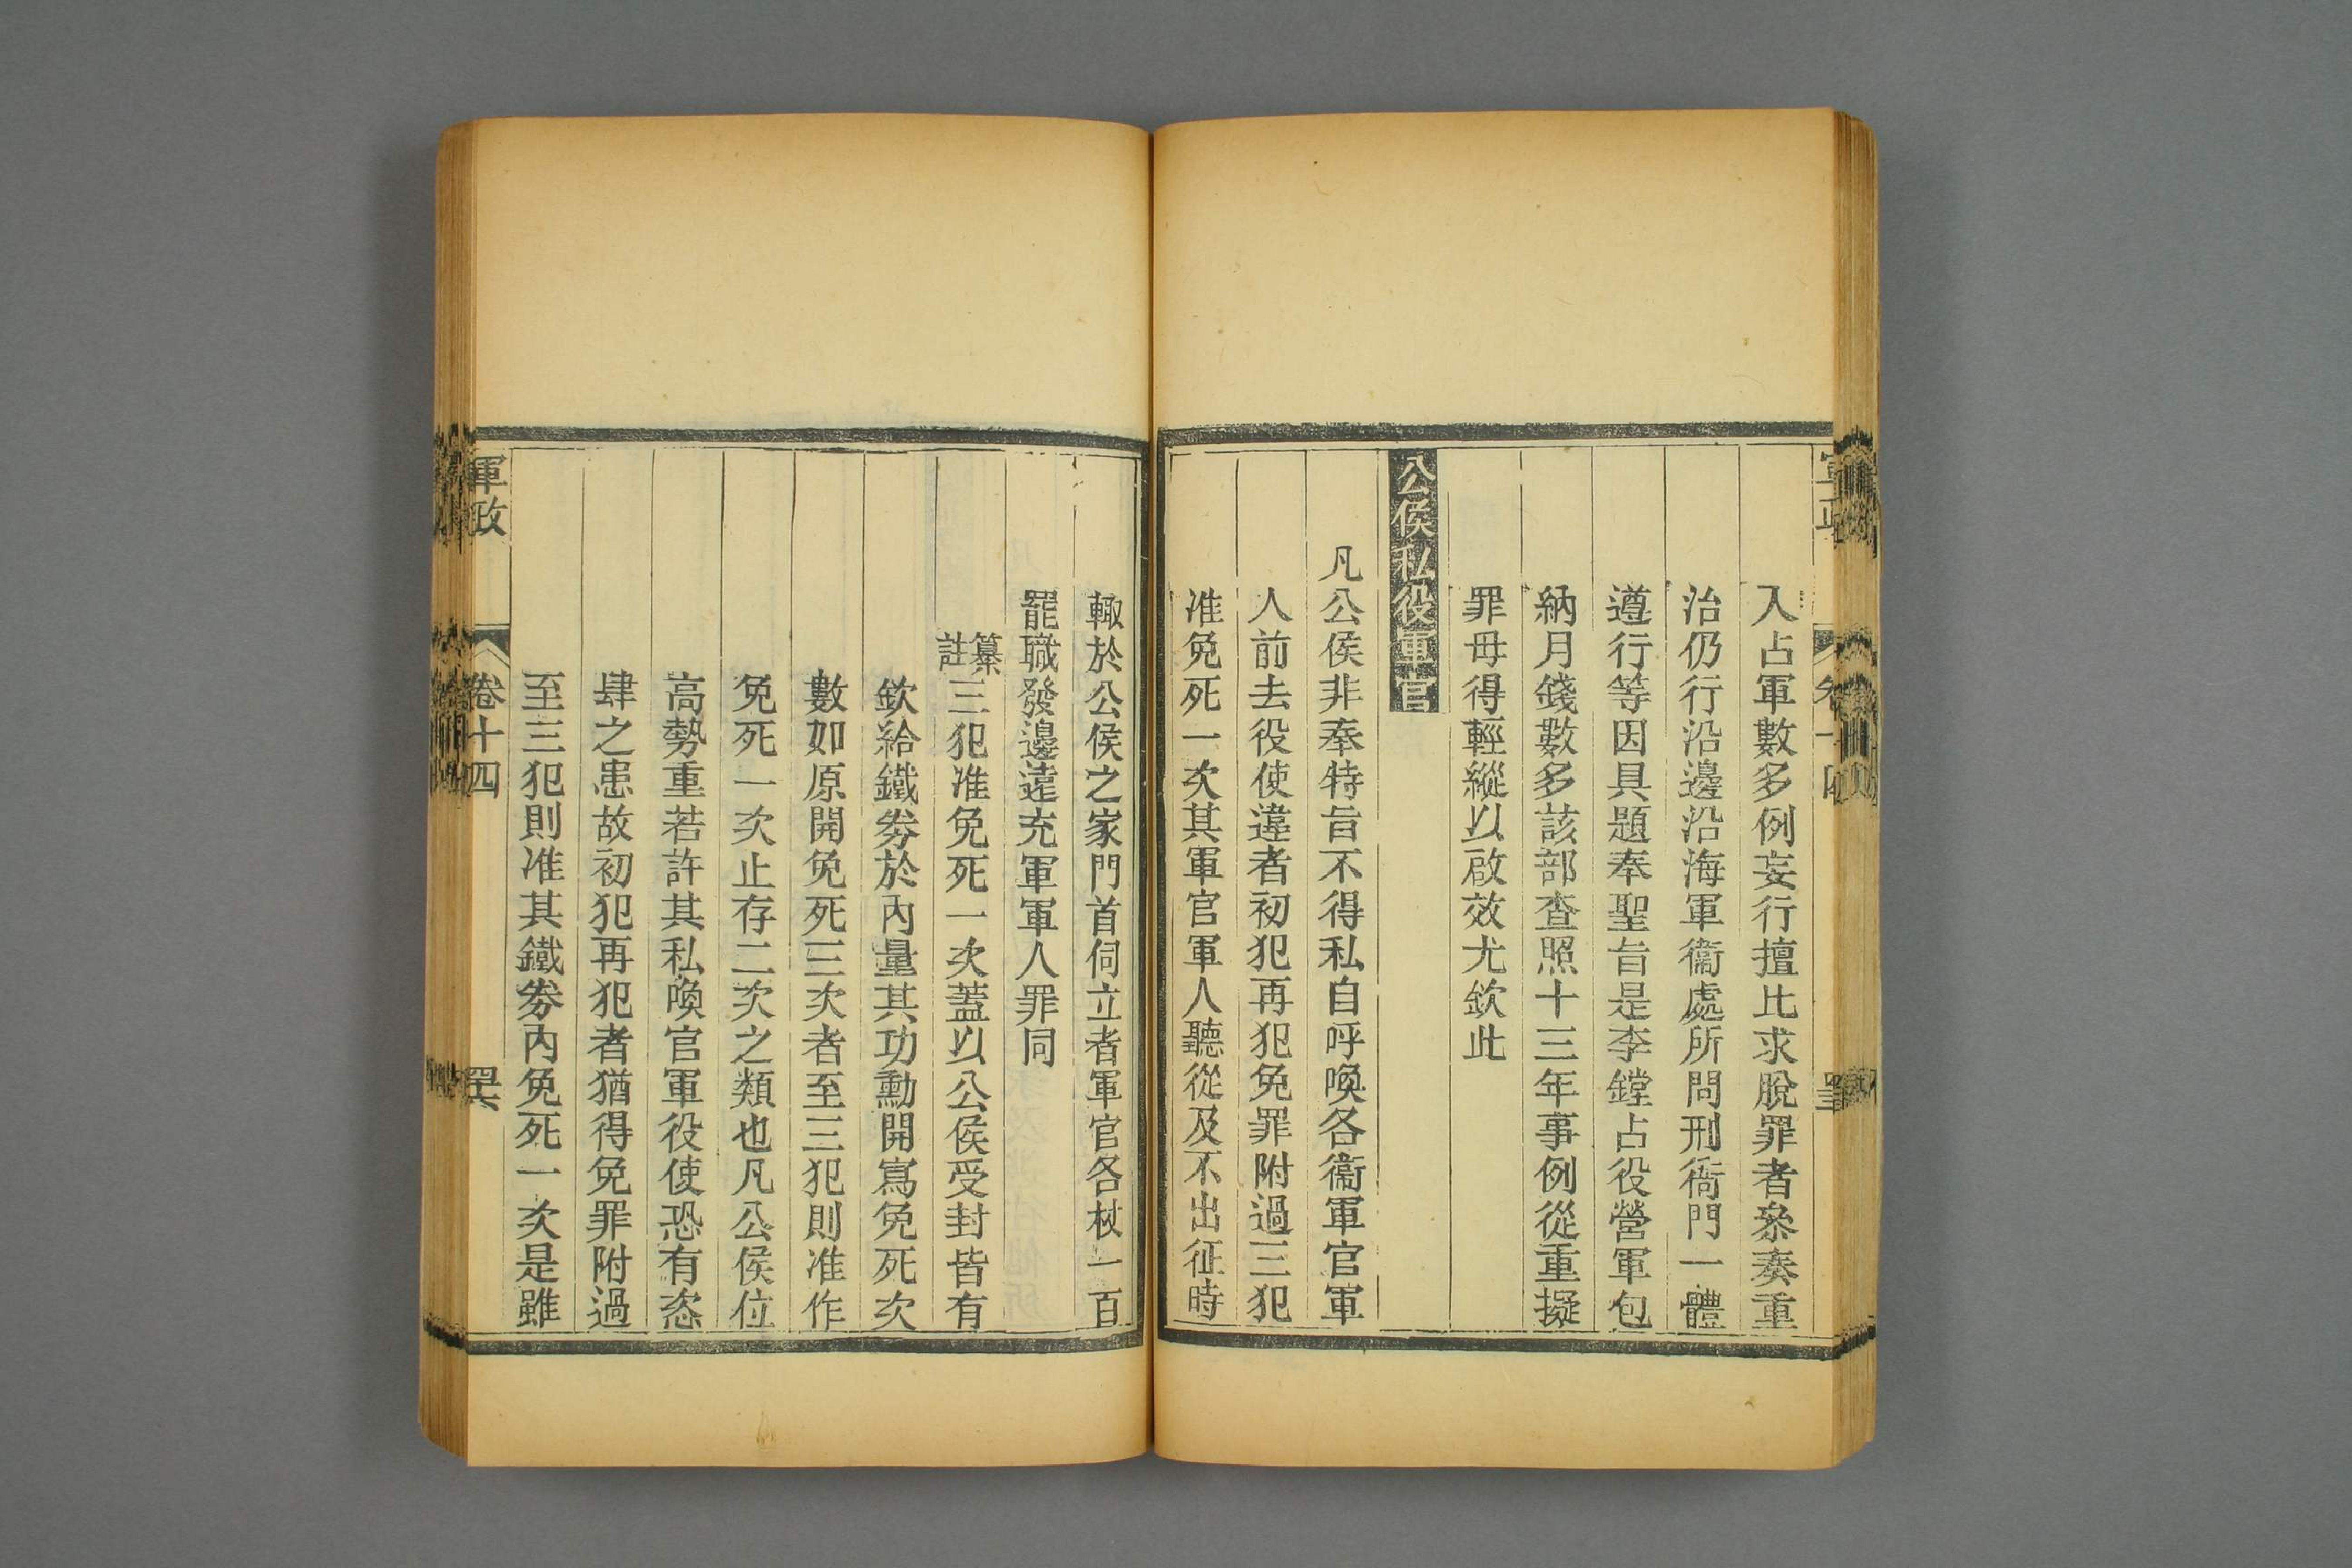 入占軍數多例妄行擅比求脫罪者叅奏重
治仍行沿邊沿海軍衞處所問刑衙門一體
遵行等因具題奉聖旨是李鏜占役營軍包
納月錢數多該部查照十三年事例從重擬
罪毋得輕縱以啟效尤欽此
公侯私役軍官
凡公侯非奉特旨不得私自呼喚各衞軍官軍
人前去役使違者初犯再犯免罪附過三犯
准免死一次其軍官軍人聽從及不出征時
輙於公侯之家門首伺立者軍官各杖一百
罷職發邊遠充軍軍人罪同
纂註三犯准免死一次蓋以公侯受封皆有
欽給鐵劵於內量其功勳開寫免死次
數如原開免死三次者至三犯則准作
免死一次止存二次之類也凡公侯位
高勢重若許其私喚官軍役使恐有恣
肆之患故初犯再犯者猶得免罪附過
至三犯則准其鐵劵內免死一次是雖
軍政
卷十四
四六